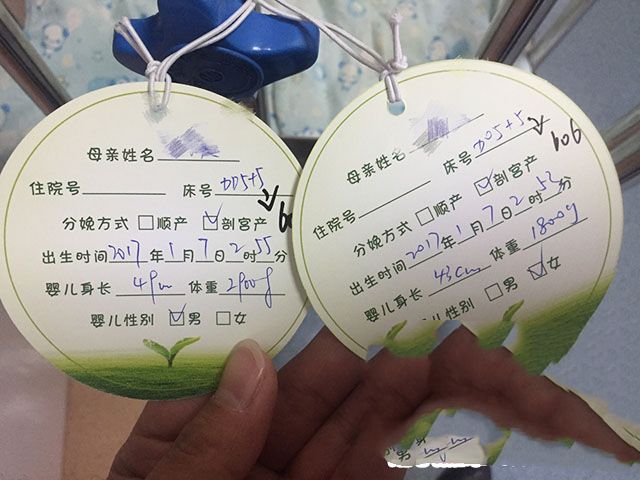 母亲姓名
住院号 床号 DD5+5
分娩方式 □顺产 ☑剖宫产
出生时间 2017 年 1 月 7 日 2 时 55 分
婴儿身长 49cm 体重 2900g
婴儿性别 ☑男 □女
母亲姓名
住院号 床号 DD5+5
606
分娩方式 □顺产 ☑剖宫产
出生时间 2017 年 1 月 7 日 2 时 52 分
婴儿身长 43cm 体重 1800g
婴儿性别 □男 ☑女
男